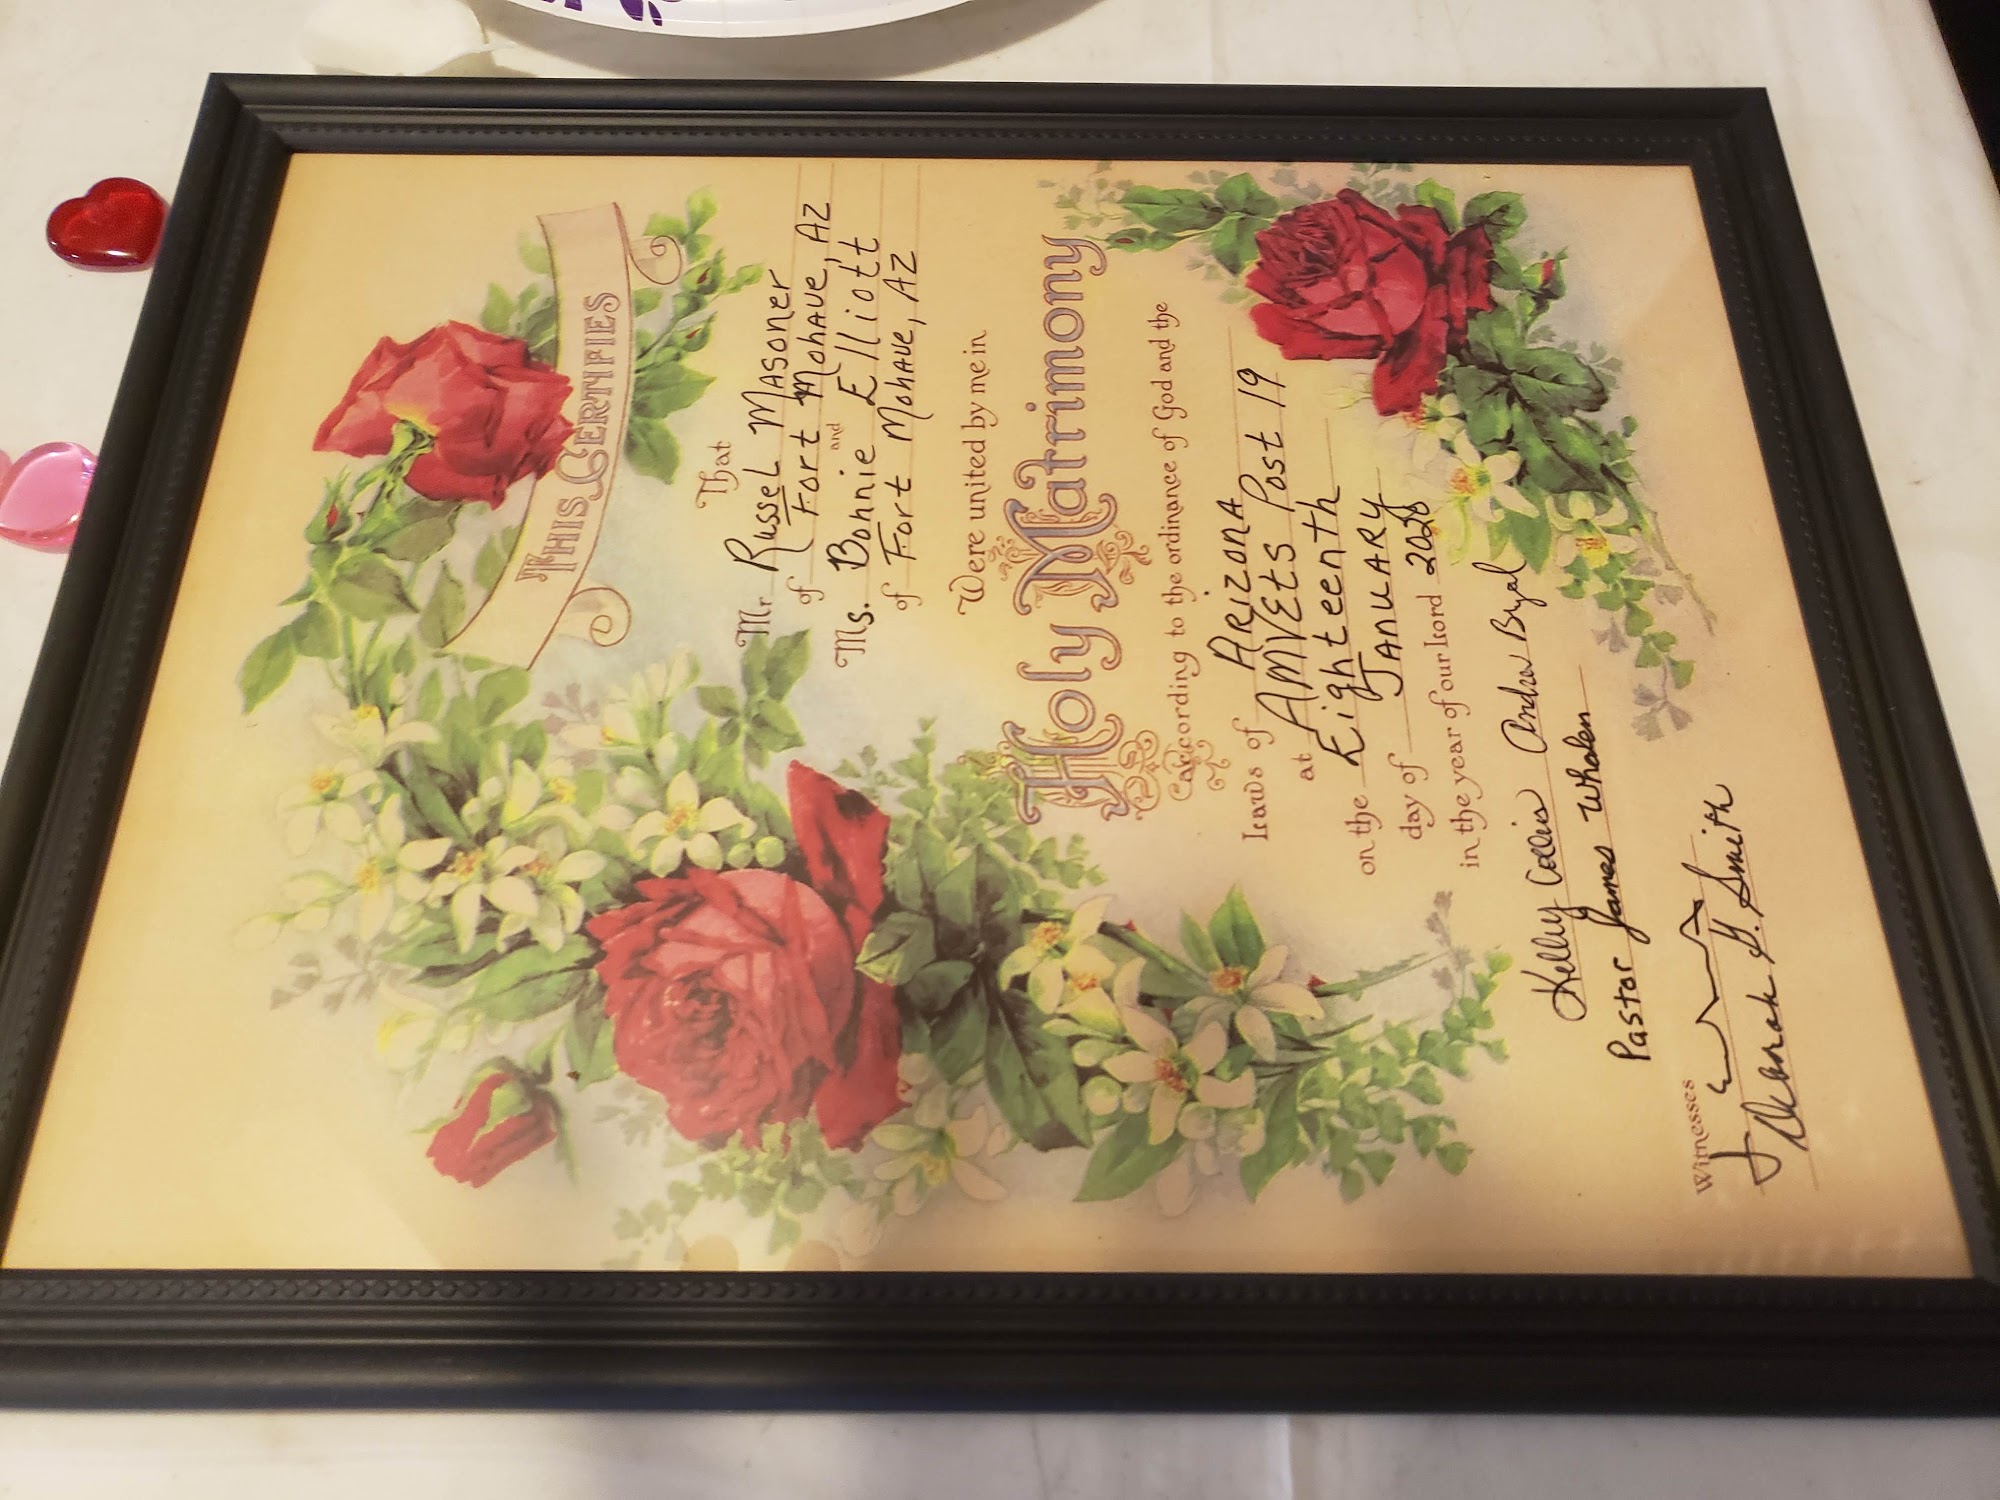 THIS CERTIFIES
That
Mr. Russel Masoner
of Fort Mohave, AZ
and
Ms. Bonnie Elliott
of Fort Mohave, AZ
Were united by me in
Holy Matrimony
According to the ordinance of God and the
Laws of ARIZONA
at AMVETS Post 19
on the Eighteenth
day of JANUARY
in the year of our Lord 2020
Kelly Collis Andrew
Pastor James Whalen
Witnesses
Deborah G. Smith